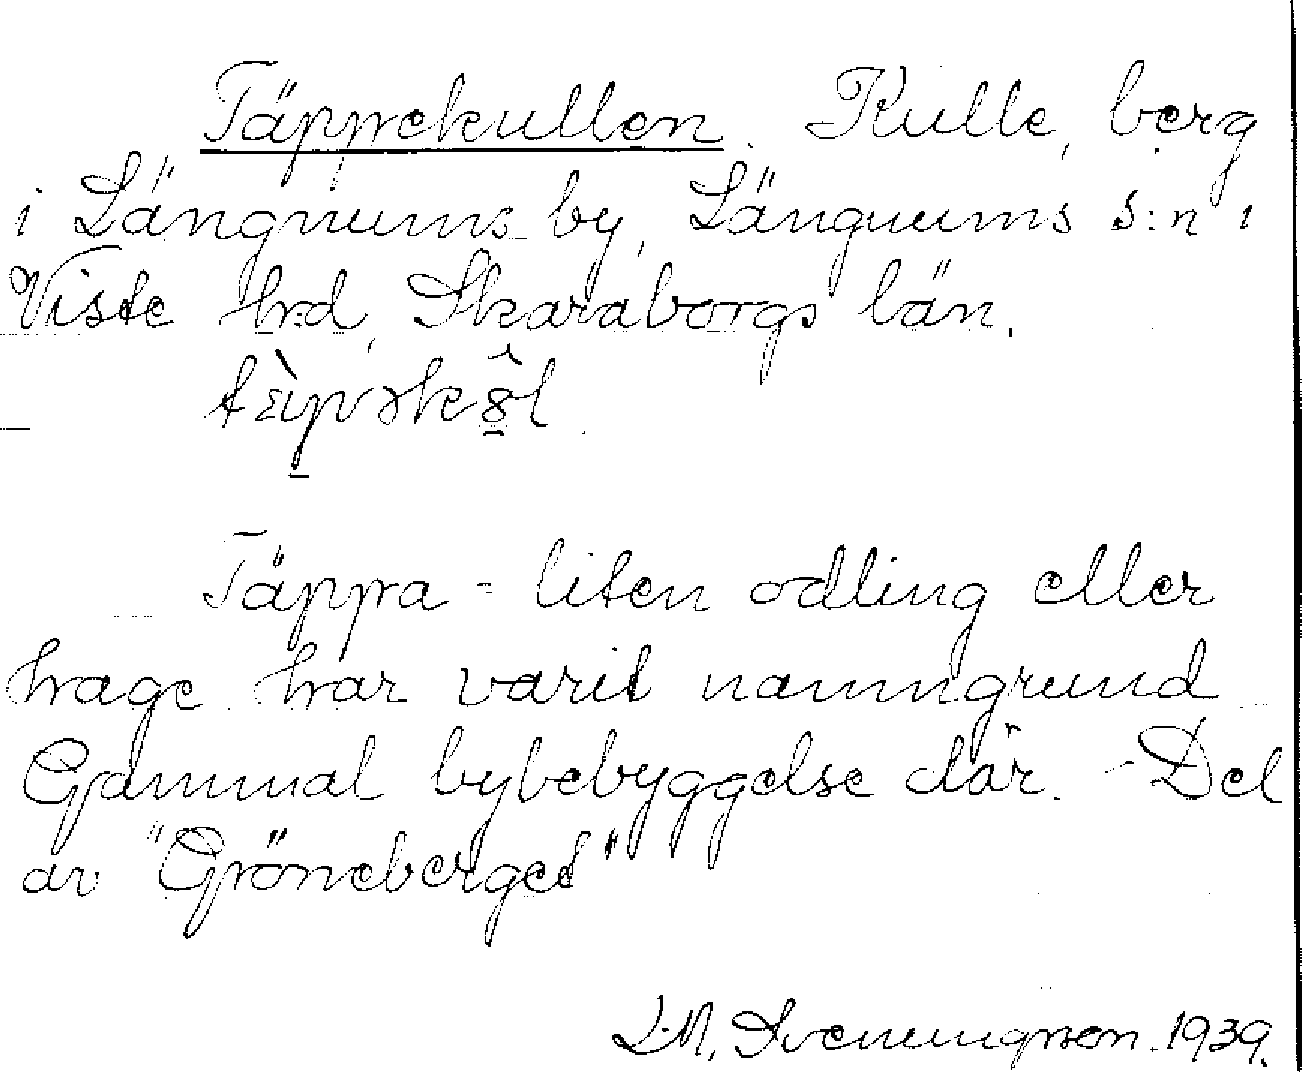 Täppekullen. Kulle, berg
i Längnums by, Längnums s:n i
Viste hrd, Skaraborgs län.
Täppa - liten odling eller
hage har varit namngrund
Gammal bybebyggelse där. - Del
av "Gröneberget"
L.M. Svenungsson. 1939.